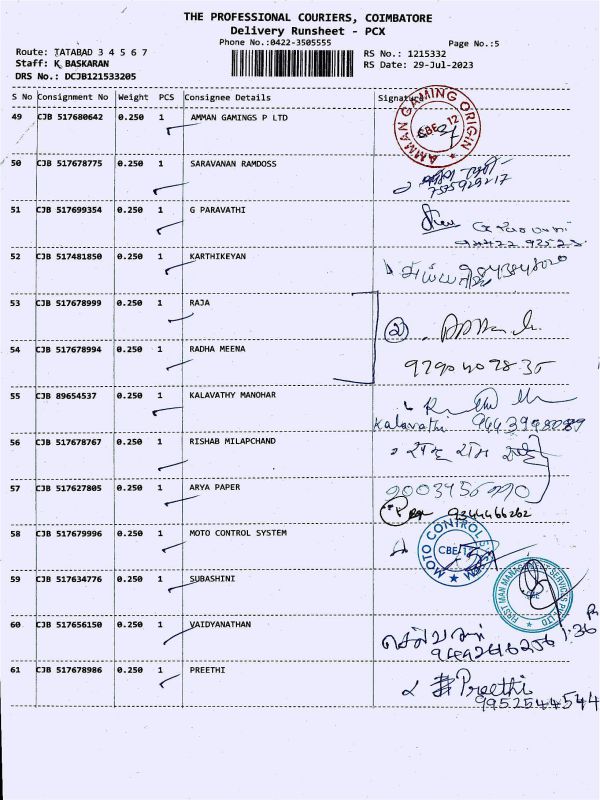 THE PROFESSIONAL COURIERS, COIMBATORE
Delivery Runsheet - PCX
Phone No.:0422-3505555
Page No.:5
Route: TATABAD 3 4 5 6 7
RS No.: 1215332
Staff: K BASKARAN
RS Date: 29-Jul-2023
DRS No.: DCJB121533205
S No Consignment No Weight PCS Consignee Details Signature
49 CJB 517680642 0.250 1 AMMAN GAMINGS P LTD
AMMAN GAMING ORIGIN
CBE 12
50 CJB 517678775 0.250 1 SARAVANAN RAMDOSS
51 CJB 517699354 0.250 1 G PARAVATHI
52 CJB 517481850 0.250 1 KARTHIKEYAN
53 CJB 517678999 0.250 1 RAJA
2
54 CJB 517678994 0.250 1 RADHA MEENA
55 CJB 89654537 0.250 1 KALAVATHY MANOHAR
Kalavathi
56 CJB 517678767 0.250 1 RISHAB MILAPCHAND
57 CJB 517627805 0.250 1 ARYA PAPER
9344466262
58 CJB 517679996 0.250 1 MOTO CONTROL SYSTEM
MOTO CONTROL
CBE/12
59 CJB 517634776 0.250 1 SUBASHINI
FIRST MAN MANAGEMENT SERVICES PVT LTD
CBE
60 CJB 517656150 0.250 1 VAIDYANATHAN
1.36
61 CJB 517678986 0.250 1 PREETHI
Preethi
9952544544